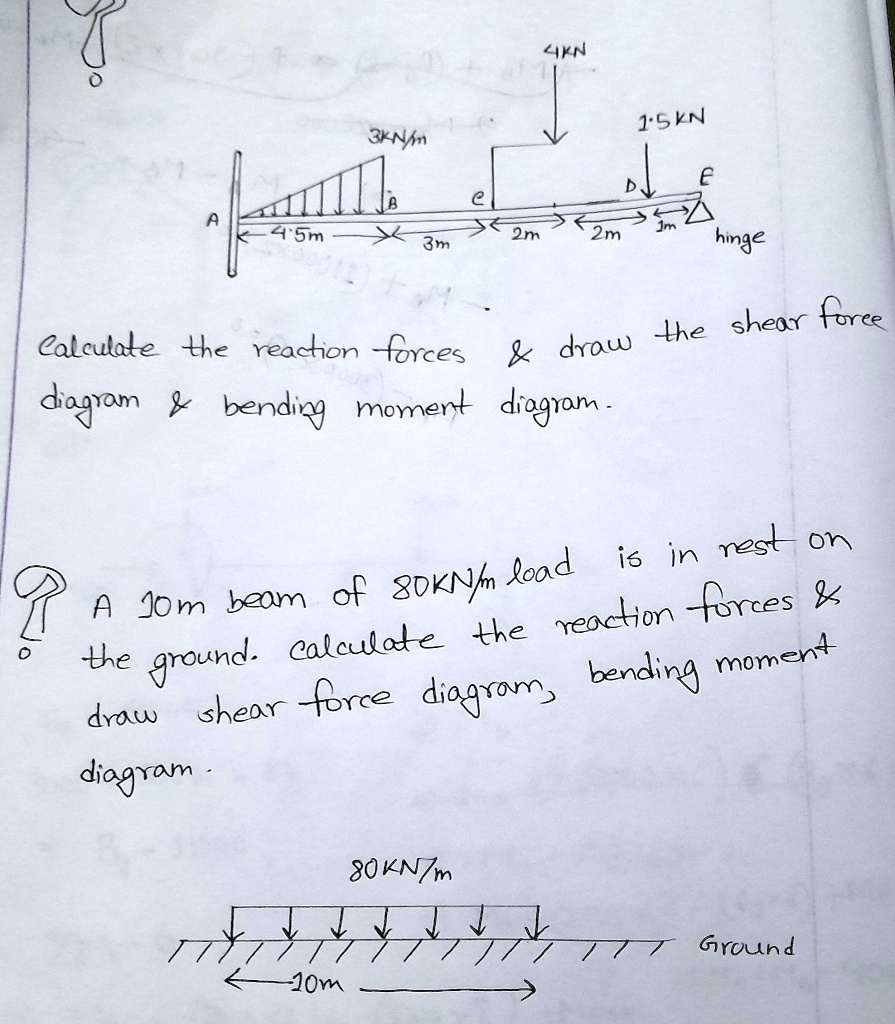 ?
4KN
3KN/m
1.5 KN
A
B
C
D
E
4.5m
3m
2m
2m
1m
hinge
Calculate the reaction forces & draw the shear force
diagram & bending moment diagram.
? A 10m beam of 80KN/m load is in rest on
the ground. Calculate the reaction forces &
draw shear force diagram, bending moment
diagram.
80KN/m
Ground
10m